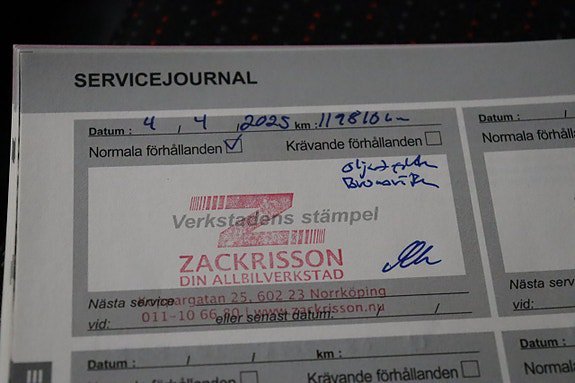 SERVICEJOURNAL
Datum : 4 , 4 , 2025 km : 119810 km
Normala förhållanden Krävande förhållanden
Verkstadens stämpel
ZACKRISSON
DIN ALLBILVERKSTAD
Nästa service
gatan 25, 602 23 Norrköping
vid: eller senast datum: / /
011-10 66 80 | www.zackrisson.nu
Datum : / / km :
Normala förhållanden Krävande förhållanden
Datum : /
Normala förh
Verks
Nästa servi
vid:
Datum :
Normala förh